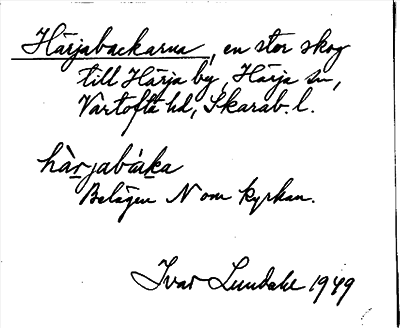 Härjabackarna, en stor skog
till Härja by, Härja sn,
Vartofta hd, Skarab. l.
hàrjabáka
Belägen N om kyrkan.
Ivar Lundahl 1949